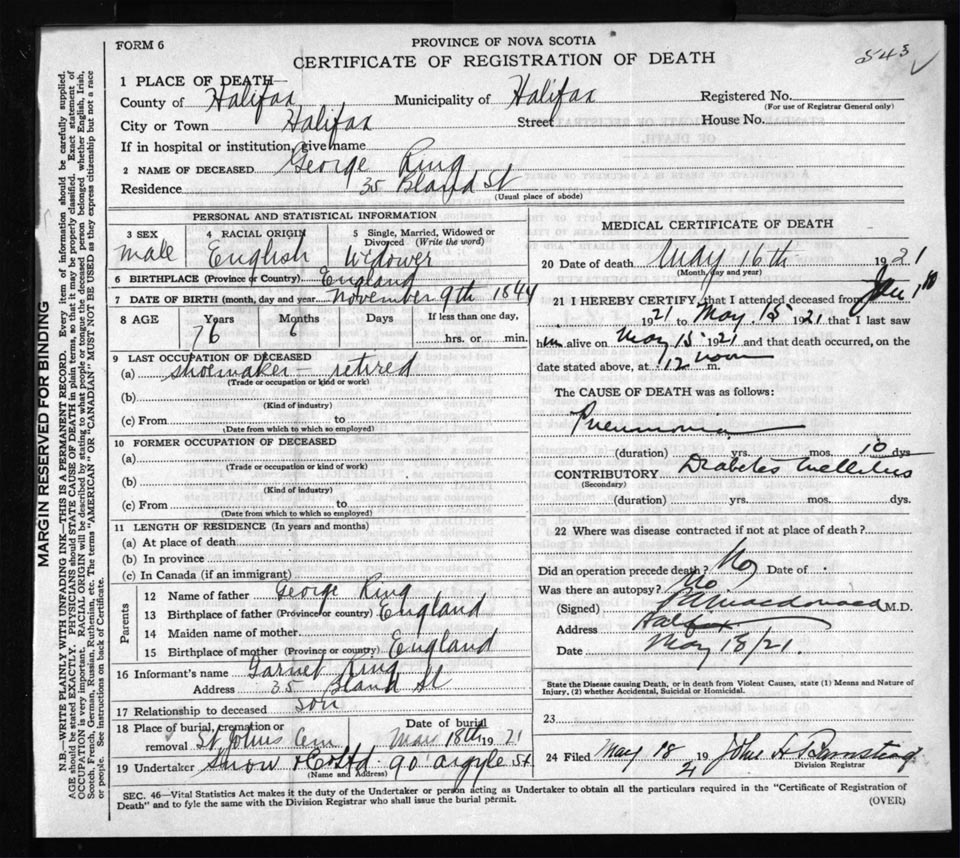 FORM 6
PROVINCE OF NOVA SCOTIA
CERTIFICATE OF REGISTRATION OF DEATH
543
1 PLACE OF DEATH
County of Halifax Municipality of Halifax Registered No.
(For use of Registrar General only)
City or Town Halifax Street House No.
If in hospital or institution, give name
2 NAME OF DECEASED George Ring
Residence 35 Bland St
(Usual place of abode)
PERSONAL AND STATISTICAL INFORMATION
3 SEX 4 RACIAL ORIGIN 5 Single, Married, Widowed or Divorced (Write the word)
male English Widower
6 BIRTHPLACE (Province or Country) England
7 DATE OF BIRTH (month, day and year) November 9th 1844
8 AGE Years Months Days If less than one day,
76 6 hrs. or min.
9 LAST OCCUPATION OF DECEASED
(a) Shoemaker - retired
(Trade or occupation or kind of work)
(b)
(Kind of industry)
(c) From to
(Date from which to which so employed)
10 FORMER OCCUPATION OF DECEASED
(a)
(Trade or occupation or kind of work)
(b)
(Kind of industry)
(c) From to
(Date from which to which so employed)
11 LENGTH OF RESIDENCE (In years and months)
(a) At place of death
(b) In province
(c) In Canada (if an immigrant)
Parents
12 Name of father George Ring
13 Birthplace of father (Province or country) England
14 Maiden name of mother
15 Birthplace of mother (Province or country) England
16 Informant's name Garnet Ring
Address 35 Bland St
17 Relationship to deceased son
18 Place of burial, cremation or removal St Johns Cem Date of burial May 18th 1921
19 Undertaker Snow & Co Ltd 90 Argyle St
(Name and Address)
MEDICAL CERTIFICATE OF DEATH
20 Date of death May 16th 1921
(Month, day and year)
21 I HEREBY CERTIFY, that I attended deceased from Jan 1st
1921 to May 15 1921 that I last saw
him alive on May 15 1921 and that death occurred, on the
date stated above, at 12 noon m.
The CAUSE OF DEATH was as follows:
Pneumonia
(duration) yrs. mos. 10 dys
CONTRIBUTORY Diabetes Mellitus
(Secondary)
(duration) yrs. mos. dys.
22 Where was disease contracted if not at place of death?
Did an operation precede death? No Date of
Was there an autopsy? No
(Signed) Macdonald M.D.
Address Halifax
Date May 18/21.
State the Disease causing Death, or in death from Violent Causes, state (1) Means and Nature of
Injury, (2) whether Accidental, Suicidal or Homicidal.
23
24 Filed May 18 1921 John H Barnstead
Division Registrar
SEC. 46—Vital Statistics Act makes it the duty of the Undertaker or person acting as Undertaker to obtain all the particulars required in the "Certificate of Registration of
Death" and to fyle the same with the Division Registrar who shall issue the burial permit.
(OVER)
MARGIN RESERVED FOR BINDING
N.B.—WRITE PLAINLY WITH UNFADING INK—THIS IS A PERMANENT RECORD. Every item of information should be carefully supplied.
AGE should be stated EXACTLY. PHYSICIANS should STATE CAUSE OF DEATH in plain terms, so that it may be properly classified. Exact statement of
OCCUPATION is very important. RACIAL ORIGIN will be described by stating to what people or tongue the deceased person belonged whether English, Irish,
Scotch, French, German, Russian, Ruthenian, etc. The terms "AMERICAN" OR "CANADIAN" MUST NOT BE USED as they express citizenship but not a race
or people. See instructions on back of Certificate.